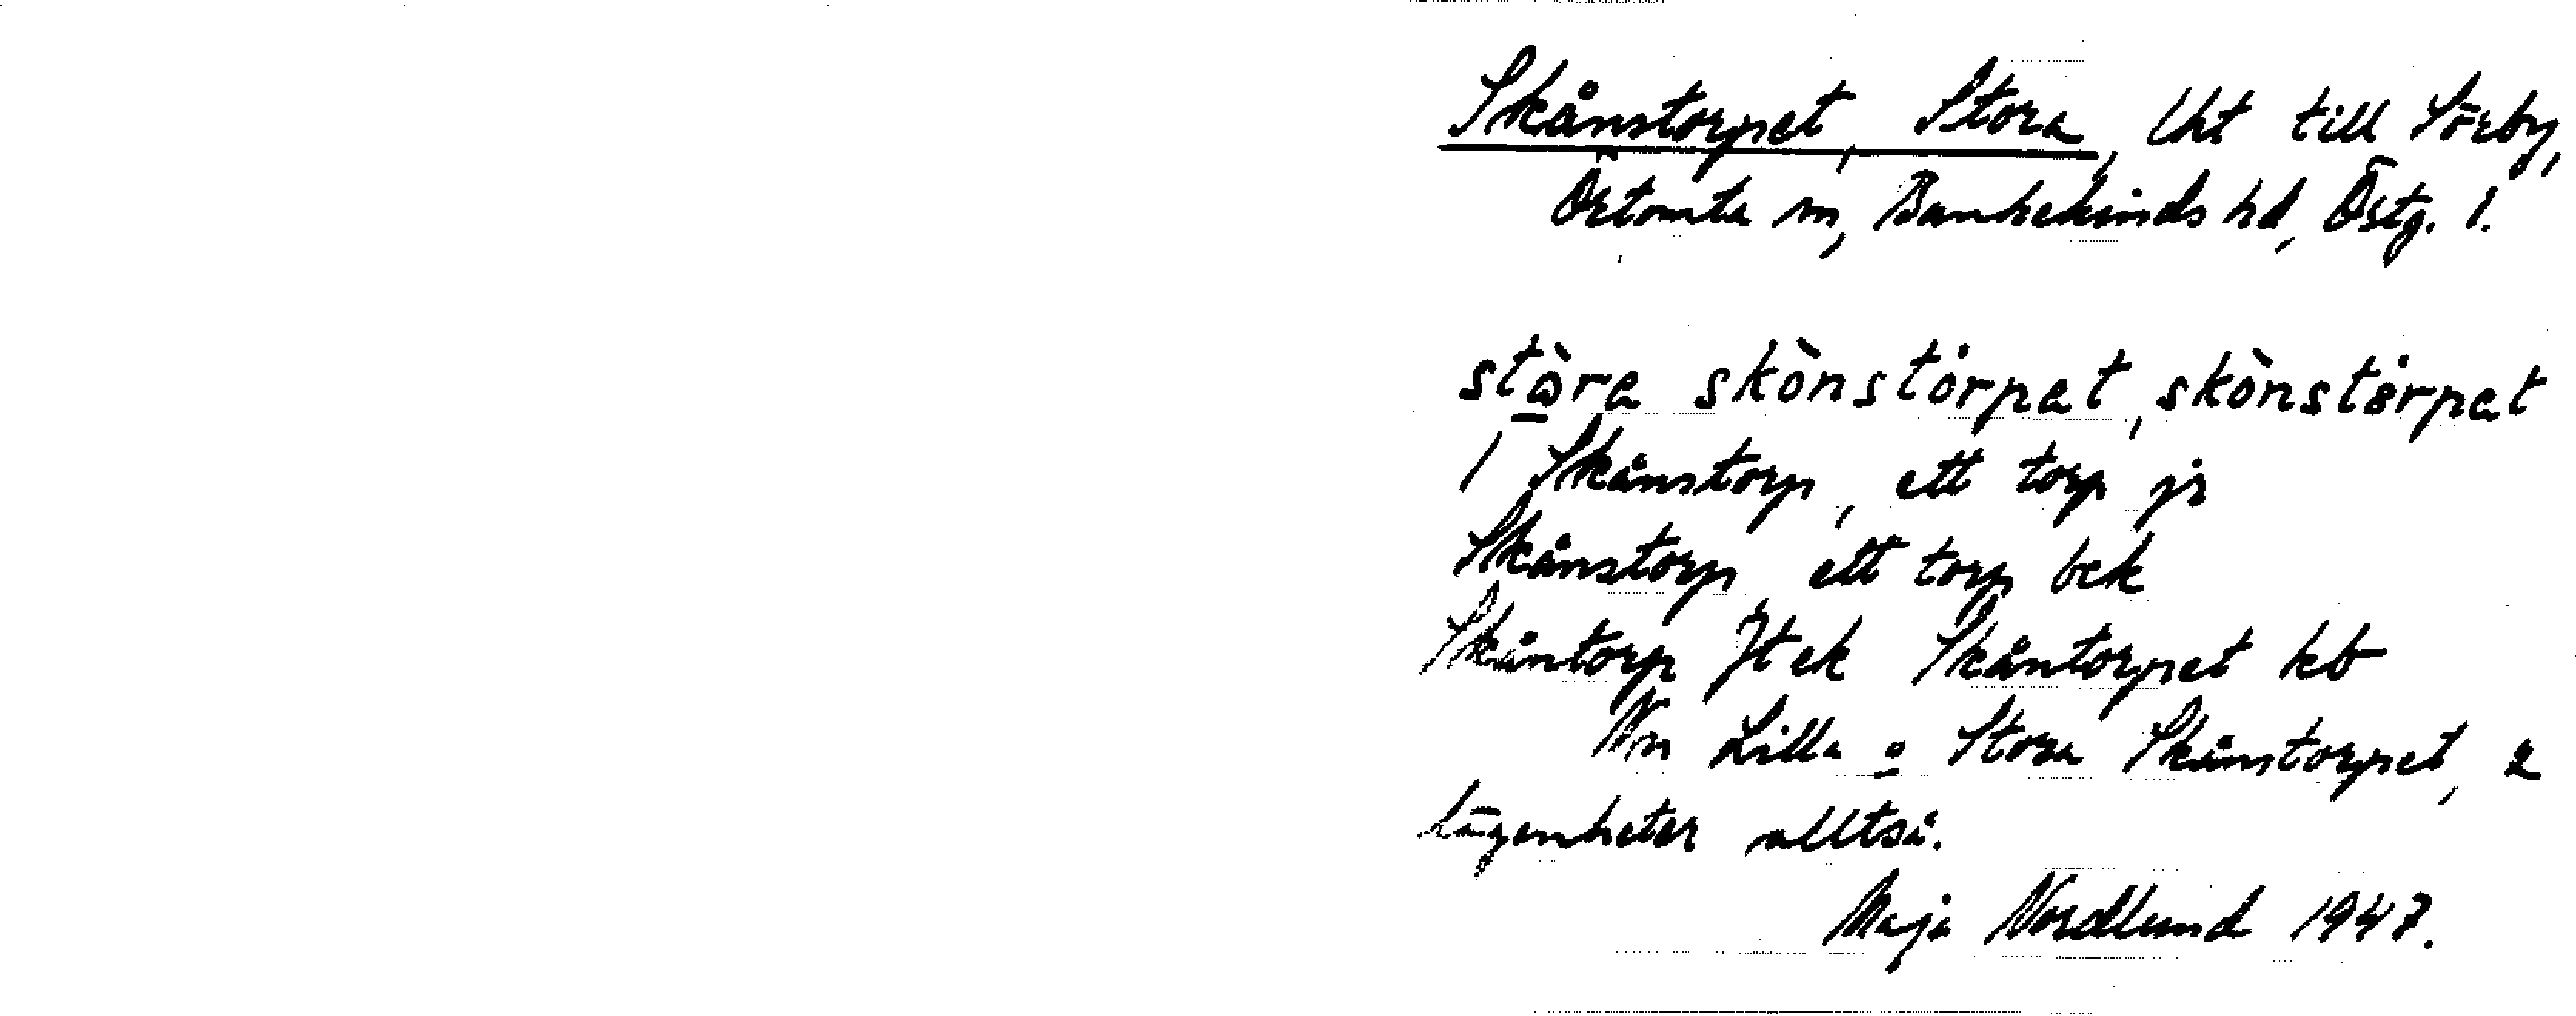 Skånstorpet, Stora, Uht till Sörby,
Örtomta sn, Bankekinds hd, Östg. l.
stòra skònstórpat, skònstórpat
/ Skånstorp, ett torp js
Skånstorp, ett torp bek
Skåntorp Jt ek Skåntorpet kb
Nn Lilla o Stora Skånstorpet, 2
lägenheter alltså.
Maja Nordlund 1947.